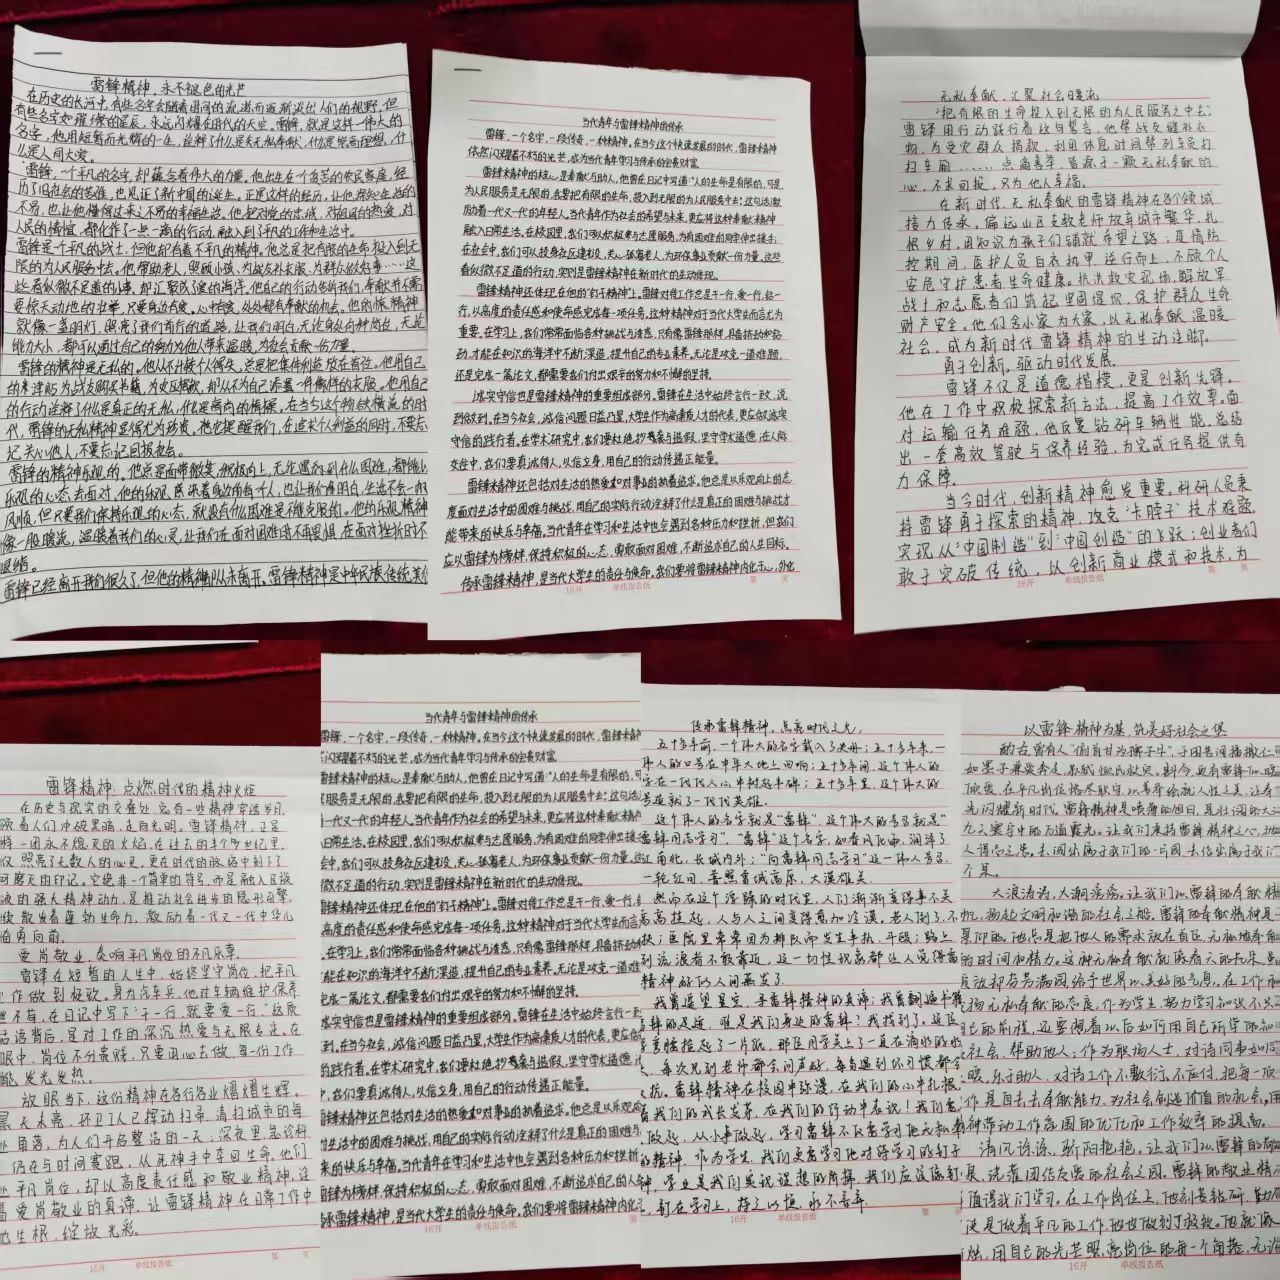 雷锋精神，永不褪色的光芒
在历史的长河中，有些名字会随着时间的流逝而逐渐淡出人们的视野，但
有些名字如璀璨的星辰，永远闪耀在时代的天空。雷锋，就是这样一个伟大的
名字，他用短暂而光辉的一生，诠释了什么是无私奉献，什么是崇高理想，什
么是人间大爱。
雷锋，一个平凡的名字，却蕴含着伟大的力量，他出生在一个贫苦的农民家庭，经
历了旧社会的苦难，也见证了新中国的诞生。正是这样的经历，让他深知生活的
不易，也让他懂得过来之不易的幸福生活。他把对党的忠诚，对祖国的热爱，对
人民的情怀，都化作了一点一滴的行动，融入到了平凡的工作和生活中。
雷锋是个平凡的战士，但他却有着不平凡的精神。他总是把有限的生命，投入到无
限的为人民服务中去。他帮助老人，照顾小孩，为战友补衣服，为群众做好事……这
些看似微不足道的小事，却汇聚成了爱的海洋。他的行动告诉我们，奉献并不需
要惊天动地的壮举，只要身边有爱，心中有爱，处处都有奉献的机会。他的雷锋精神
就像一盏明灯，照亮了我们前行的道路，让我们明白，无论身处何种岗位，无论
能力大小，都可以通过自己的努力为他人带来温暖，为社会贡献一份力量。
雷锋的精神是无私的。他从不计较个人得失，总是把集体利益放在首位。他用自己
的津贴为战友购买书籍，为灾区捐款，却从不为自己添置一件像样的衣服。他用自己
的行动诠释了什么是真正的无私，什么是高尚的情操。在当今这个物欲横流的时
代，雷锋的无私精神显得尤为珍贵。他也提醒我们，在追求个人利益的同时，不要忘
记关心他人，不要忘记回报社会。
雷锋的精神是乐观的。他总是面带微笑，积极向上，无论遇到什么困难，都能以
乐观的心态去面对。他的乐观，感染着身边的每一个人，也让我们懂得明白，生活不会一帆
风顺，但只要我们保持乐观的心态，就没有什么困难是不能克服的。他的乐观精神
像一股暖流，温暖着我们的心灵，让我们在面对困难时不再畏惧，在面对挫折时不
退缩。
雷锋已经离开我们很久了，但他的精神却从未离开。雷锋精神是中华民族传统美
当代青年与雷锋精神的传承
雷锋，一个名字，一段传奇，一种精神。在当今这个快速发展的时代，雷锋精神
依然闪耀着不朽的光芒，成为当代青年学习与传承的宝贵财富。
雷锋精神的核心，是奉献与助人，他曾在日记中写道："人的生命是有限的，可是，
为人民服务是无限的，我要把有限的生命，投入到无限的为人民服务中去！"这句话激
励着一代又一代的年轻人，当代青年作为社会的希望与未来，更应将这种奉献精神
融入日常生活。在校园里，我们可以积极参与志愿服务，为有困难的同学伸出援手；
在社会中，我们可以投身社区建设，关心孤寡老人，为环保事业贡献一份力量。这些
看似微不足道的行动，实则是雷锋精神在新时代的生动体现。
雷锋精神还体现在他的"钉子精神"上。雷锋对待工作总是干一行，爱一行，钻一
行，以高度的责任感和使命感完成每一项任务，这种精神对于当代大学生而言尤为
重要。在学习上，我们常常面临各种挑战与诱惑，只有像雷锋那样，具备挤劲和钻
劲，才能在知识的海洋中不断深造，提升自己的专业素养。无论是攻克一道难题，
还是完成一篇论文，都需要我们付出艰辛的努力和不懈的坚持。
诚实守信也是雷锋精神的重要组成部分。雷锋在生活中始终言行一致，说
到做到，在当今社会，诚信问题日益凸显，大学生作为高素质人才的代表，更应做诚实
守信的践行者。在学术研究中，我们要杜绝抄袭与造假，坚守学术道德；在人际
交往中，我们要真诚待人，以信立身，用自己的行动传递正能量。
雷锋精神还包括对生活的热爱和对事业的执着追求。他总是以乐观向上的态
度面对生活中的困难与挑战，用自己的实际行动诠释了什么是真正的困难与挑战才
能带来的快乐与幸福。当代青年在学习和生活中也会遇到各种压力和挫折，但我们
应以雷锋为榜样，保持积极的心态，勇敢面对困难，不断追求自己的人生目标。
传承雷锋精神，是当代大学生的责任与使命。我们要将雷锋精神内化于心，外化
16开 单线报告纸 第 页
无私奉献，汇聚社会暖流
"把有限的生命投入到无限的为人民服务之中去。"
雷锋用行动践行着这句誓言，他帮战友缝补衣
物，为受灾群众捐款，利用休息时间帮列车员打
扫车厢……点滴善举，皆源于一颗无私奉献的
心，不求回报，只为他人幸福。
在新时代，无私奉献的雷锋精神在各个领域
接力传承。偏远山区支教老师放弃城市繁华，扎
根乡村，用知识为孩子们铺就希望之路；疫情防
控期间，医护人员白衣执甲，逆行而上，不顾个人
安危守护患者生命健康。抗洪救灾现场，解放军
战士和志愿者们筑起坚固堤坝，保护群众生命
财产安全。他们舍小家为大家，以无私奉献温暖
社会，成为新时代雷锋精神的生动注脚。
勇于创新，驱动时代发展。
雷锋不仅是道德楷模，更是创新先锋。
他在工作中积极探索新方法，提高工作效率。面
对运输任务难题，他反复钻研车辆性能，总结
出一套高效驾驶与保养经验，为完成任务提供有
力保障。
当今时代，创新精神愈发重要。科研人员秉
持雷锋勇于探索的精神，攻克"卡脖子"技术难题，
实现从"中国制造"到"中国创造"的飞跃；创业者们
敢于突破传统，以创新商业模式和技术，为
16开 单线报告纸 第 页
雷锋精神：点燃时代的精神火炬
在历史与现实的交叠处，总有一些精神穿透岁月，
照着人们冲破黑暗，走向光明。雷锋精神，正是
一团永不熄灭的火焰，在过去的半个多世纪里，
仅照亮了无数人的心灵，更在时代的脉络中刻下了
可磨灭的印记。它绝非一个简单的符号，而是融入民族
液的强大精神动力，是推动社会进步的隐形引擎，
续散发着蓬勃生命力，激励着一代又一代中华儿
奋勇向前。
爱岗敬业，奏响平凡岗位的不凡乐章
雷锋在短暂的人生中，始终坚守岗位，把平凡
作做到极致。身为汽车兵，他对车辆维护保养
丝不苟，在日记中写下"干一行，就要爱一行。"这质
话语背后，是对工作的深沉热爱与无限专注。在
眼中，岗位不分贵贱，只要用心去做，每一份工作
能发光发热。
放眼当下，这份精神在各行各业熠熠生辉。
晨天未亮，环卫工人已挥动扫帚，清扫城市的每
个角落，为人们开启整洁的一天；深夜里，急诊科
仍在与时间赛跑，从死神手中夺回生命。他们
处平凡岗位，却以高度责任感和敬业精神，诠
着爱岗敬业的真谛，让雷锋精神在日常工作中
地生根，绽放光彩。
16开 单线报告纸 第 页
当代青年与雷锋精神的传承
雷锋，一个名字，一段传奇，一种精神。在当今这个快速发展的时代，雷锋精神
闪耀着不朽的光芒，成为当代青年学习与传承的宝贵财富。
雷锋精神的核心，是奉献与助人，他曾在日记中写道："人的生命是有限的，可是
民服务是无限的，我要把有限的生命，投入到无限的为人民服务中去！"这句话
一代又一代的年轻人，当代青年作为社会的希望与未来，更应将这种奉献
日常生活。在校园里，我们可以积极参与志愿服务，为有困难的同学伸出
会中，我们可以投身社区建设，关心孤寡老人，为环保事业贡献一份力量。
微不足道的行动，实则是雷锋精神在新时代的生动体现。
雷锋精神还体现在他的"钉子精神"上。雷锋对待工作总是干一行，爱一行，
高度的责任感和使命感完成每一项任务，这种精神对于当代大学生而言
在学习上，我们常常面临各种挑战与诱惑，只有像雷锋那样，具备挤劲
能在知识的海洋中不断深造，提升自己的专业素养。无论是攻克一道难
完成一篇论文，都需要我们付出艰辛的努力和不懈的坚持。
诚实守信也是雷锋精神的重要组成部分。雷锋在生活中始终言行一致
到，在当今社会，诚信问题日益凸显，大学生作为高素质人才的代表，更应做
的践行者。在学术研究中，我们要杜绝抄袭与造假，坚守学术道德
中，我们要真诚待人，以信立身，用自己的行动传递正能量。
雷锋精神还包括对生活的热爱和对事业的执着追求。他总是以乐观向
生活中的困难与挑战，用自己的实际行动诠释了什么是真正的困难与
来的快乐与幸福。当代青年在学习和生活中也会遇到各种压力和挫折，
雷锋为榜样，保持积极的心态，勇敢面对困难，不断追求自己的人生目
承雷锋精神，是当代大学生的责任与使命。我们要将雷锋精神内化于
16开 单线报告纸 第
传承雷锋精神，点亮时代之光。
五十多年前，一个伟大的名字载入了史册；五十多年来，一
人的口号在中华大地上回响；五十多年间，这个伟人的
字在一代代人心中树起丰碑；五十多年里，这个伟大的
造就了一代代英雄。
这个伟人的名字就是"雷锋"，这个伟人的号召就是"
雷锋同志学习"。"雷锋"这个名字，如春风化雨，润泽了
江南北，长城内外；"向雷锋同志学习"这一伟人号召，
一轮红日，普照雪域高原，大漠雄关。
然而在这个浮躁的时代里，人们渐渐变得事不关
高高挂起，人与人之间变得愈加冷漠，老人倒了，不
扶；医院里常常因为排队而发生争执，斗殴；路上
到流浪者不敢靠近，这一切怪状忽都让人觉得雷
精神好似人间蒸发了。
我曾遥望星空，寻雷锋精神的真谛；我曾翻遍书
锋的足迹，谁是我们身边的雷锋？我找到了。
弯腰捡起了一片纸，那位同学关上了一直在滴水的水
，每次见到老师都会问声好，每当遇到坏习惯都会
抗。雷锋精神在校园中弥漫，在我们的心中扎根
着我们的成长发芽，在我们的行动中表现！我们
做起，从小事做起，学习雷锋不仅要学习他无私奉
的精神，作为学生，我们更要学习他对待学习的钉子
神，学业是我们实现理想的阶梯，我们应该像钉
钉在学习上，持之以恒，永不言弃。
16开 单线报告纸 第 页
以雷锋精神为基，筑美好社会之堡
昔有人"俯首甘为孺子牛"，
如墨子兼爱奔走，
光闪耀新时代。雷锋精神是喷薄的旭日，是壮阔的大
九天寰宇中的万道霞光。让我们秉持雷锋精神之心，
大浪滔滔，大潮荡荡。让我们以雷锋的奉献精
帆，扬起文明和谐的社会之船。雷锋的奉献精神是
景仰的。他总是把他人的需求放在首位，无私地奉献
的时间和精力。这种无私奉献就像春天的花朵，
放和芬芳满园给予世界以美好的气息。在工作中
扬无私奉献的态度，作为学生，努力学习知识不只
己的前程，还要想着以后如何用自己所学的知
社会，帮助他人；作为职场人士，对待同事如同
暖，乐于助人，对待工作不敷衍，不应付，把每一项
作是自己去奉献能力，为社会创造价值的机会，用
精神带动工作氛围的优化和工作效率的提高。
清风诉诉，骄阳艳艳。让我们以雷锋的
，浇灌团结友爱的社会之园。雷锋的敬业精神
值得我们学习。在工作岗位上，他刻苦钻研，
使是做着平凡的工作，他也做到了极致。他就像
灿，用自己的光芒照亮岗位的每一个角落，无论
16开 单线报告纸